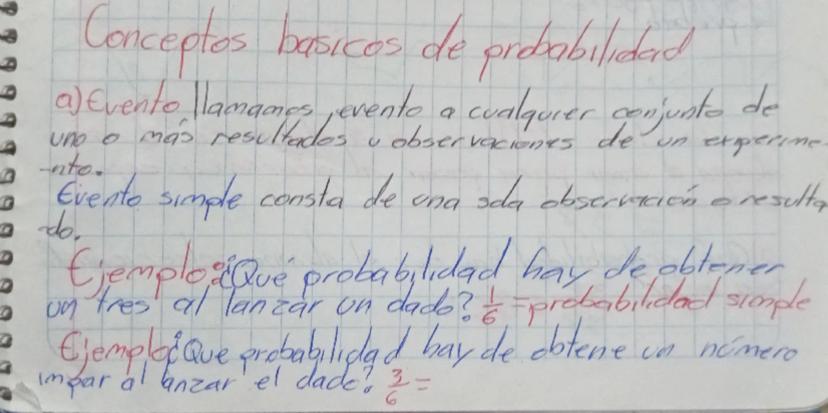 Conceptos basicos de probabilidad
a) Evento, llamamos, evento a cualquier conjunto de
uno o más resultados u observaciones de un experime
-nto.
Evento simple consta de una sola observación o resulta
do.
Ejemplo: ¿Qué probabilidad hay de obtener
un tres al lanzar un dado? 1/6 = probabilidad simple
Ejemplo ¿Que probabilidad hay de obtene un número
impar al lanzar el dado? 3/6 =